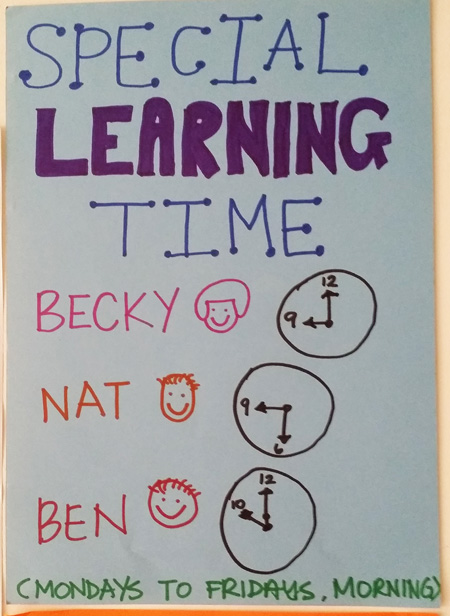 SPECIAL
LEARNING
TIME
BECKY
12
9
NAT
9
6
BEN
12
10
(MONDAYS TO FRIDAYS, MORNING)